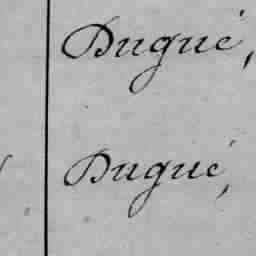 Dugué,
Dugué,